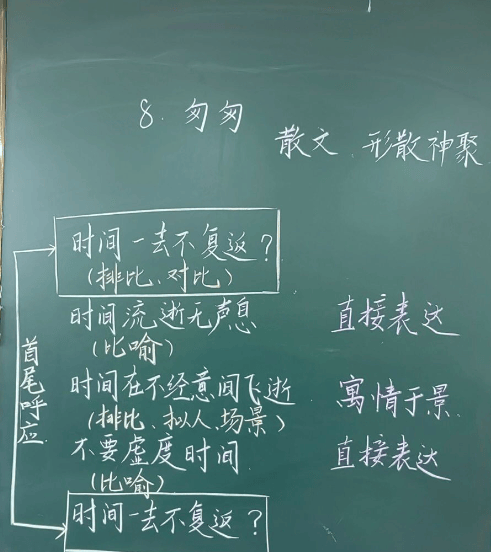 8. 匆匆
散文 形散神聚
时间一去不复返？
（排比、对比）
时间流逝无声息 直接表达
（比喻）
时间在不经意间飞逝 寓情于景
（排比、拟人、场景）
不要虚度时间 直接表达
（比喻）
时间一去不复返？
首尾呼应